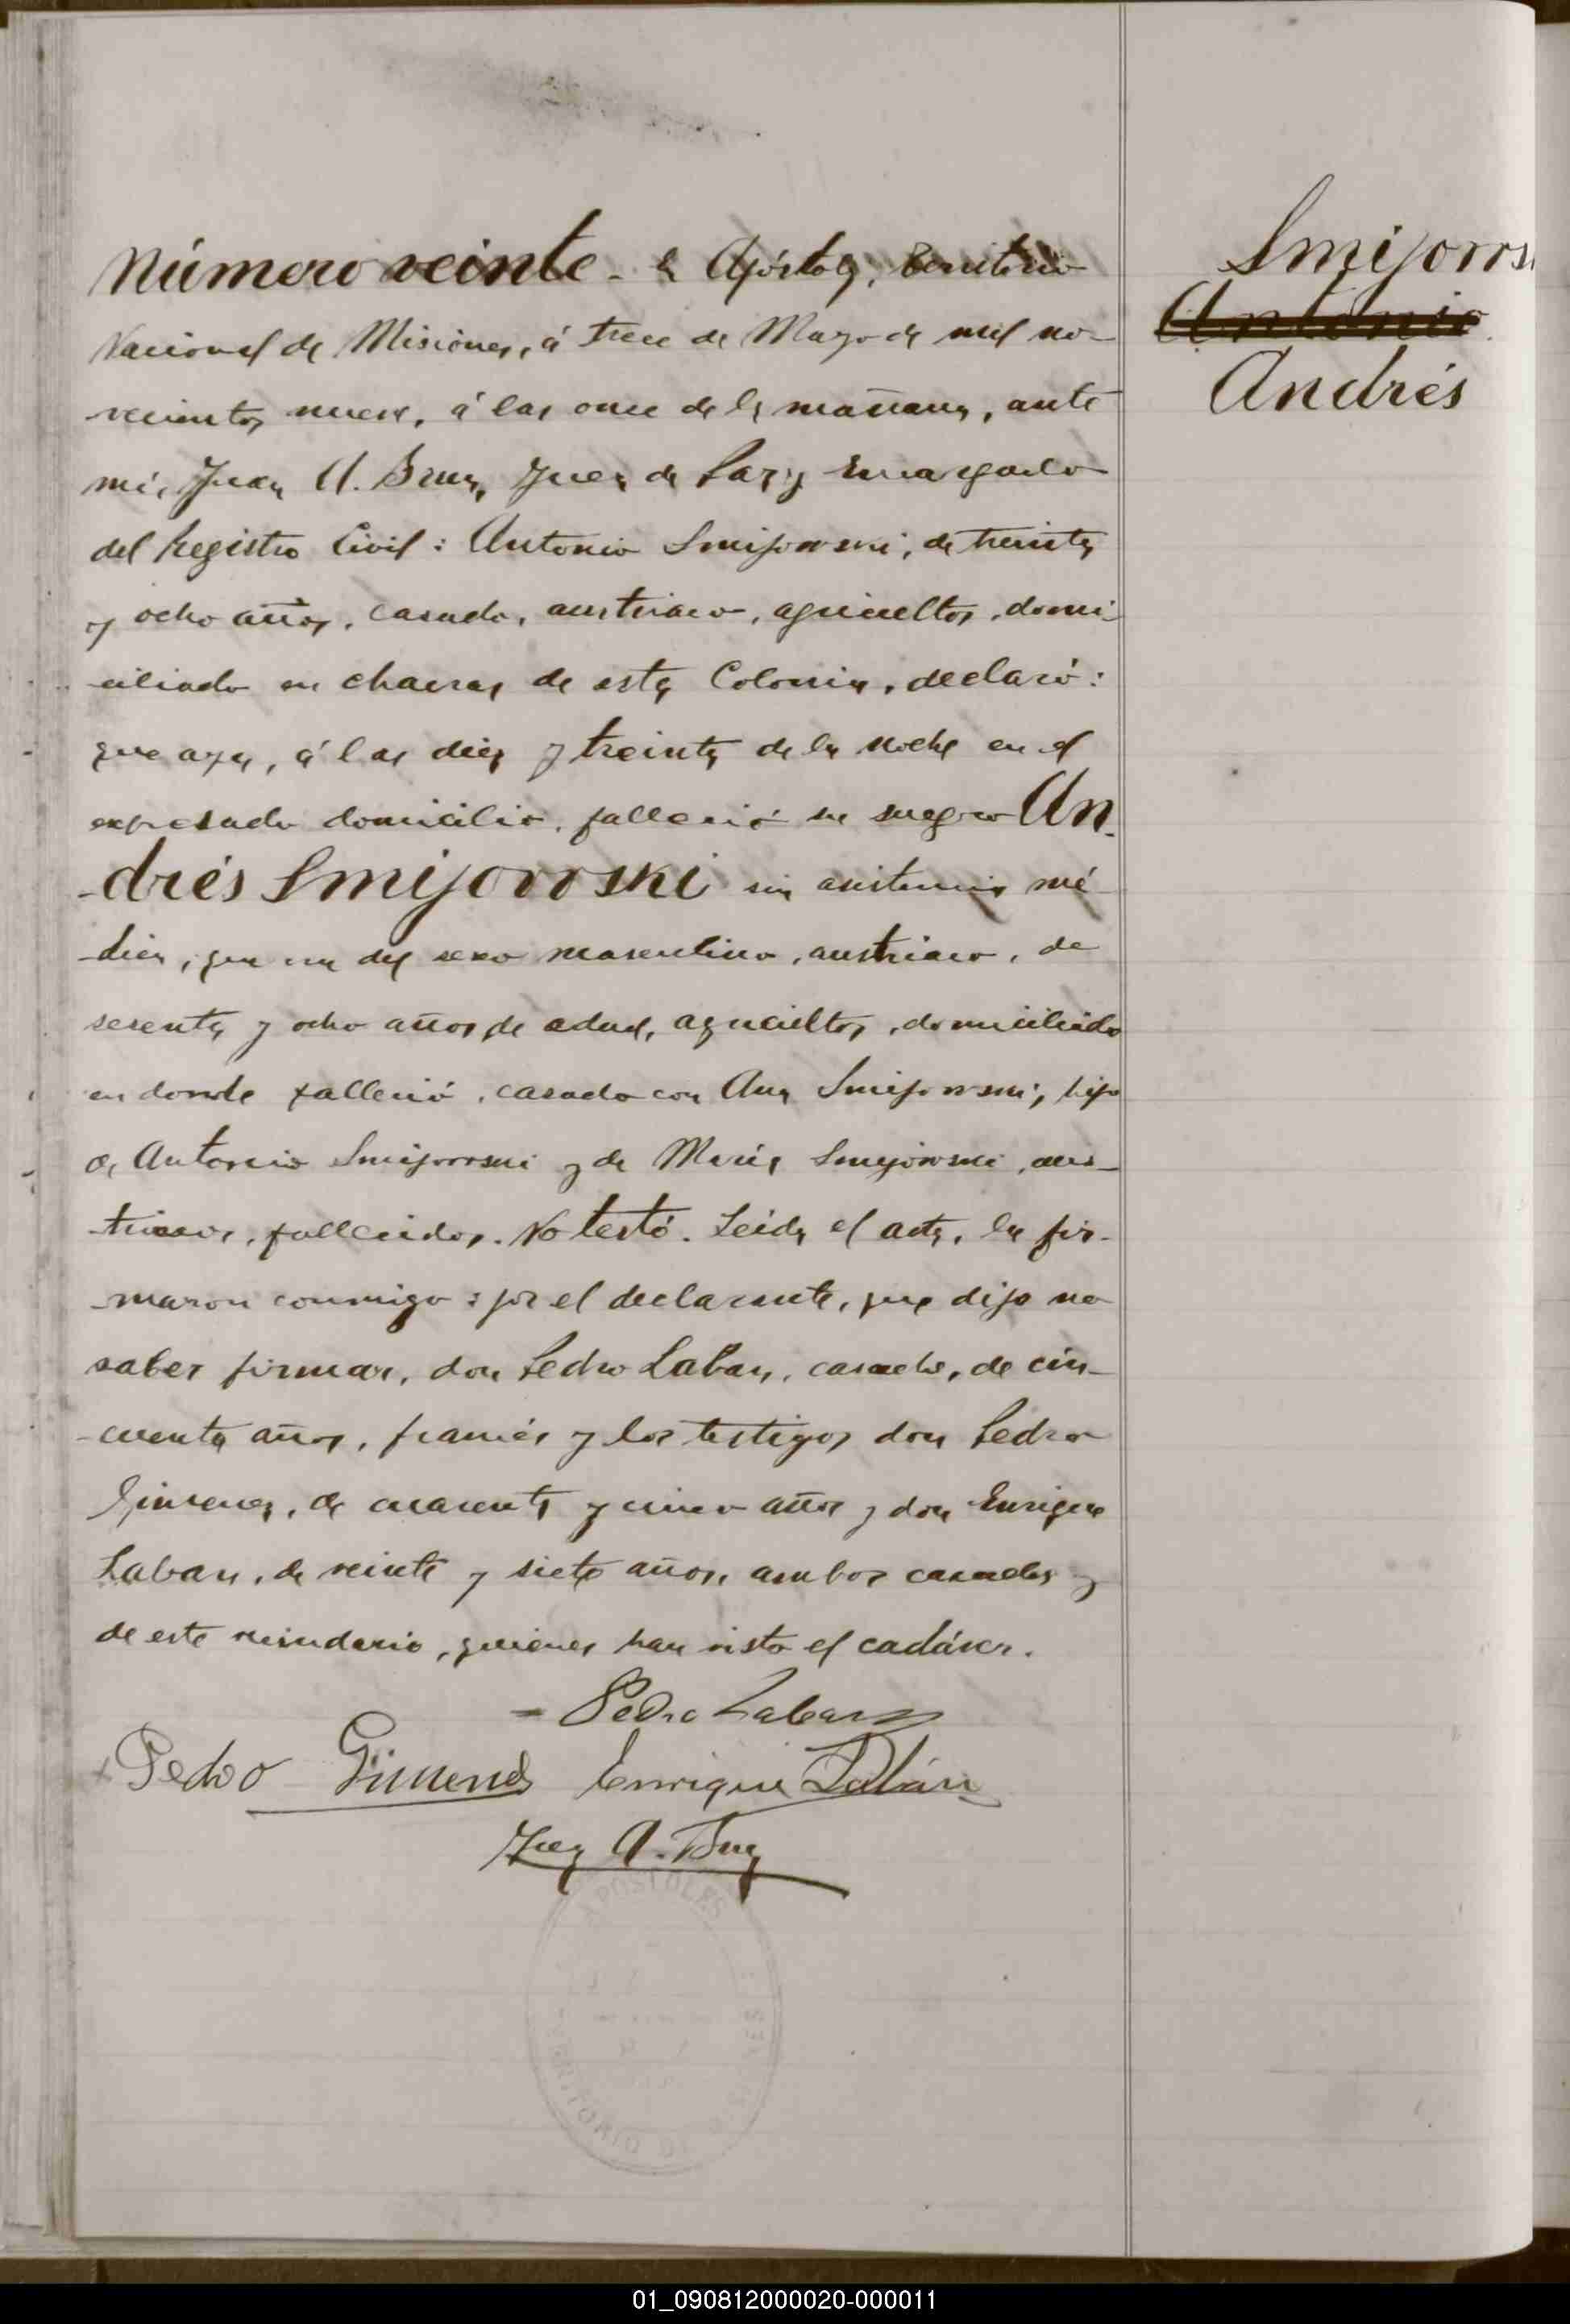 Número veinte - En Apóstoles, Territorio
Smijowski
Nacional de Misiones, á trece de Mayo de mil no-
Antonio
vecientos nueve, á las once de la mañana, ante
Andrés
mí, Juan A. Brun, Juez de Paz y Encargado
del Registro Civil: Antonio Smijowski, de treinta
y ocho años, casado, austriaco, agricultor, domi-
-ciliado en chacras de esta Colonia, declaró:
que ayer, á las diez y treinta de la noche en el
expresado domicilio, falleció su suegro An-
-drés Smijowski sin asistencia mé-
-dica, que era del sexo masculino, austriaco, de
sesenta y ocho años de edad, agricultor, domiciliado
en donde falleció, casado con Ana Smijowski, hijo
de Antonio Smijowski y de María Smijowski, aus-
-triacos, fallecidos. No testó. Leida el acta, la fir-
-maron conmigo: por el declarante, que dijo no
saber firmar, don Pedro Laban, casado, de cin-
-cuenta años, francés y los testigos don Pedro
Gimenez, de cuarenta y cinco años y don Enrique
Laban, de veinte y siete años, ambos casados y
de este vecindario, quienes han visto el cadáver.
= Pedro Laban
Pedro Gimenes Enrique Labán
Juan A. Brun
APOSTOLES
TERRITORIO DE
01_090812000020-000011